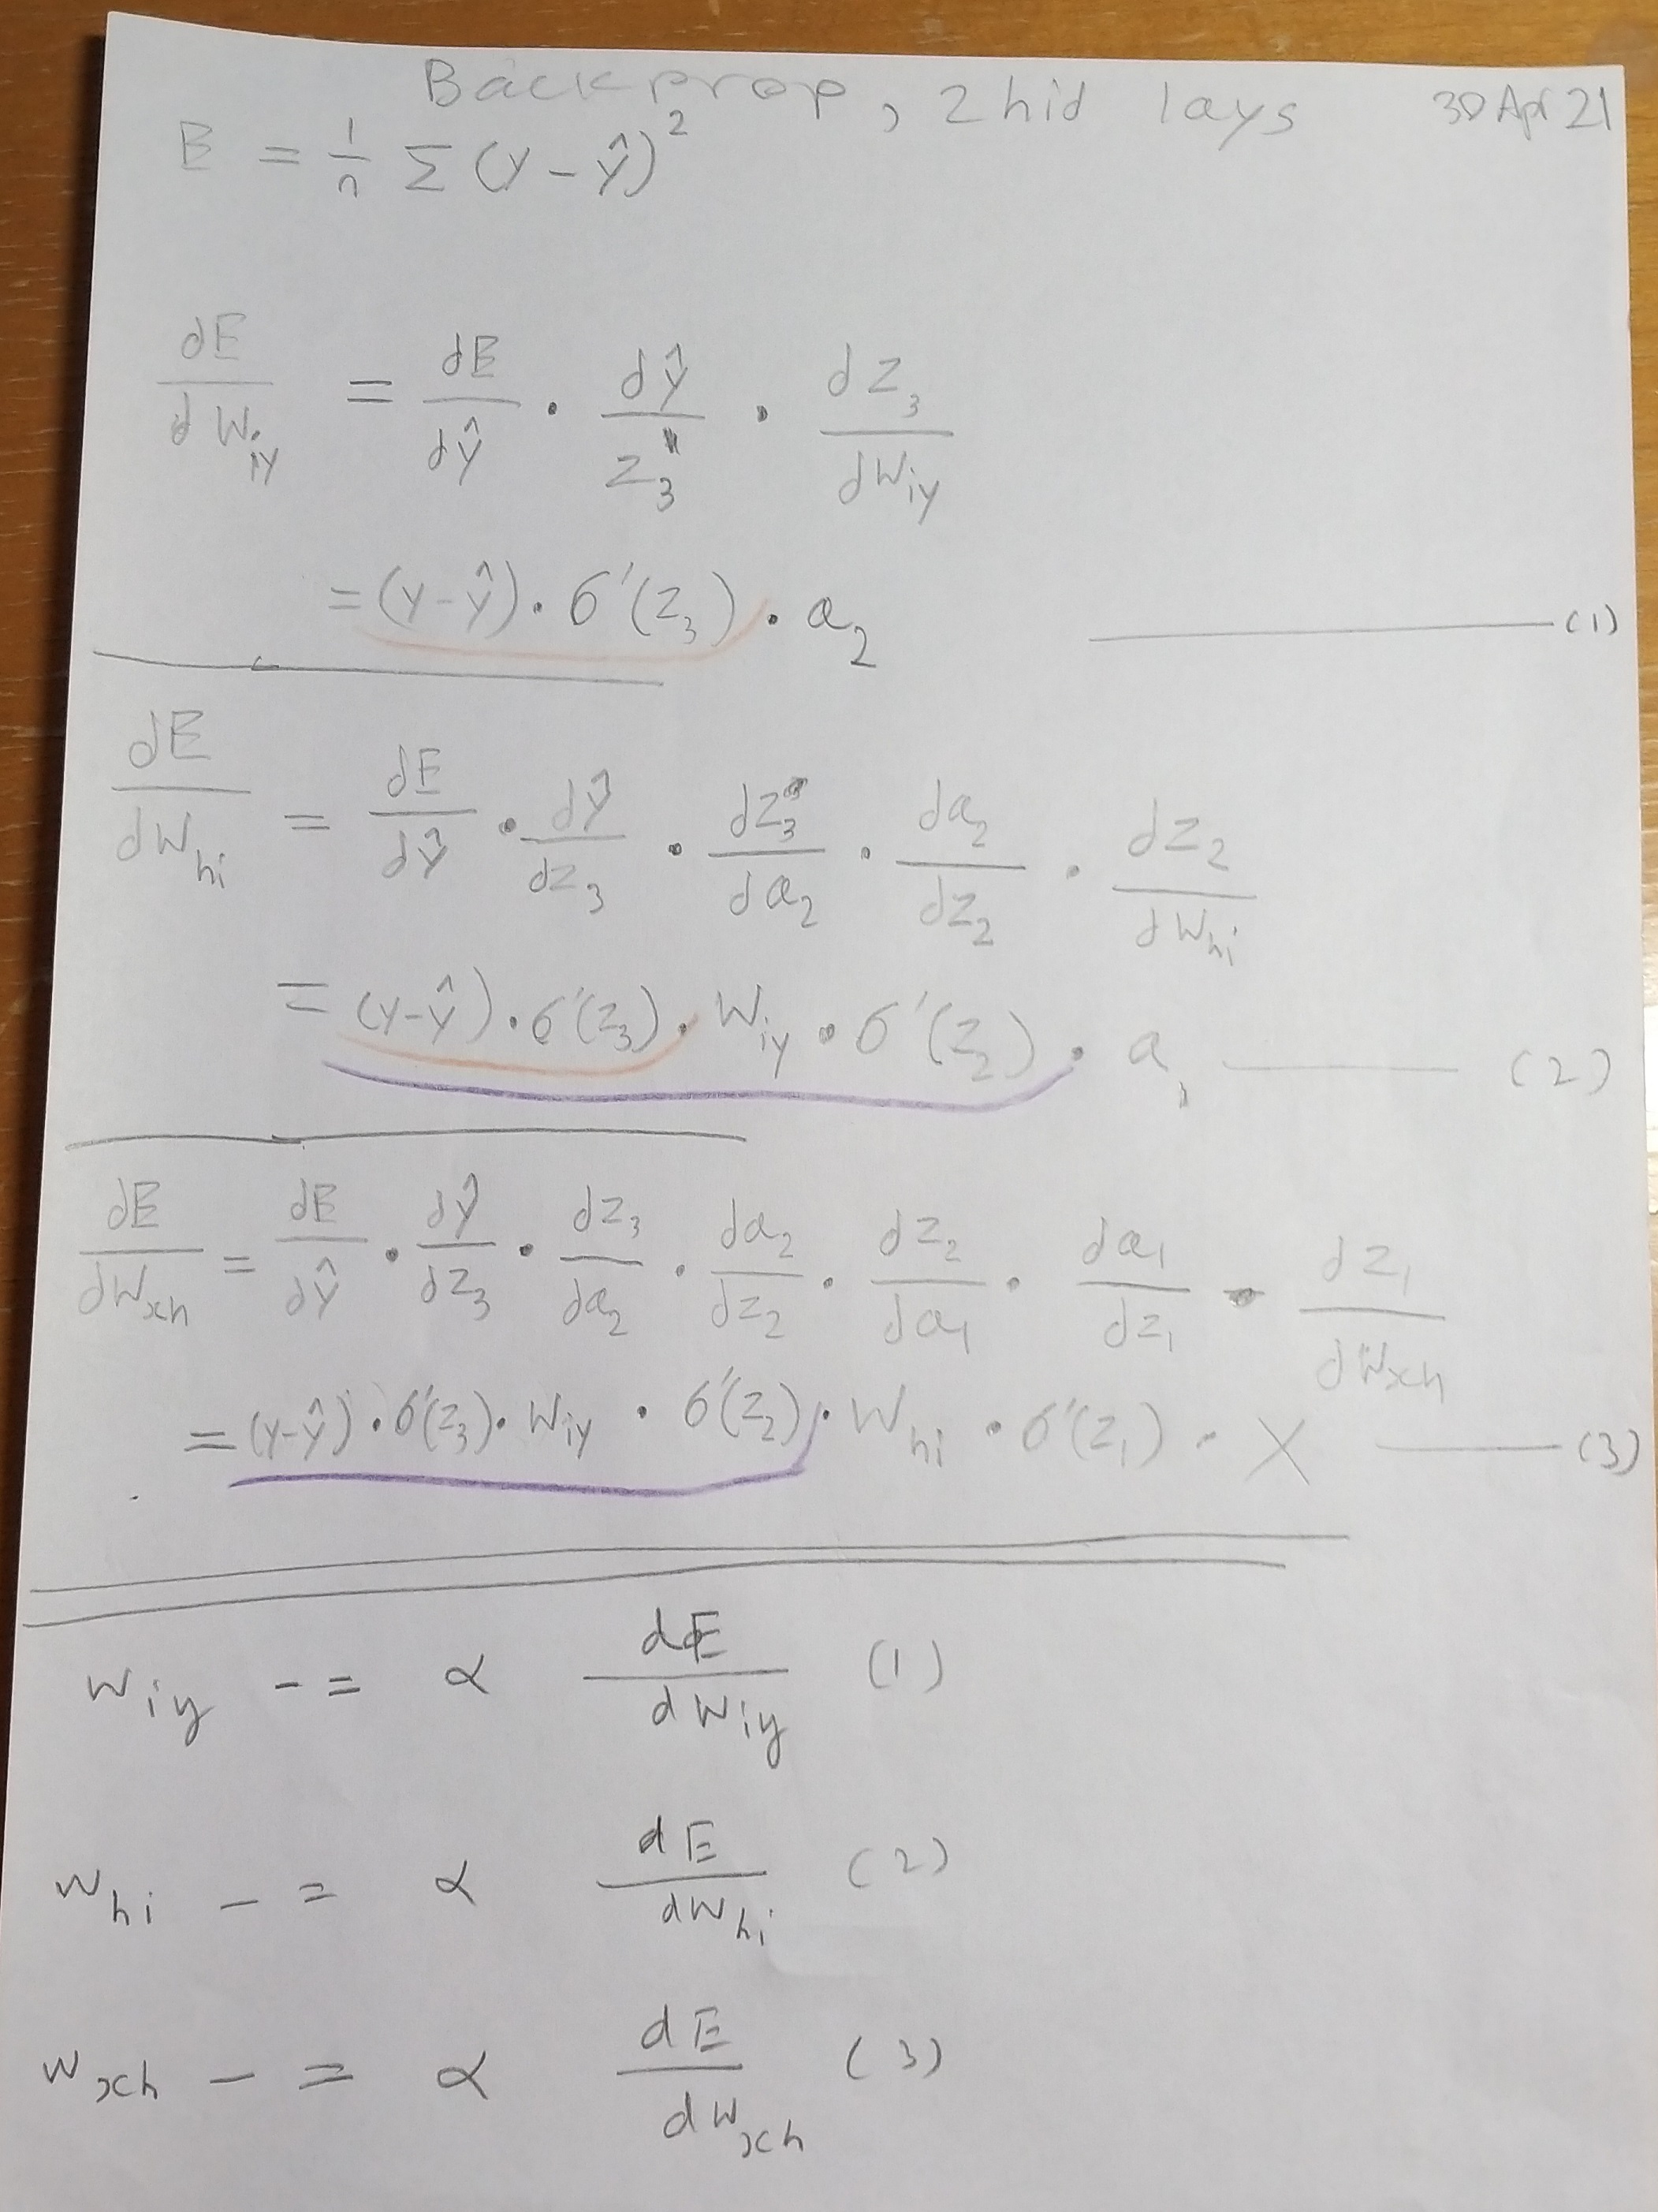 Backprop, 2 hid lays 30 Apr 21
E = 1/n Σ (y - ŷ)²
dE/dW_iy = dE/dŷ · dŷ/z_3 · dz_3/dW_iy
= (y-ŷ) · σ'(z_3) · a_2 (1)
dE/dW_hi = dE/dŷ · dŷ/dz_3 · dz_3/da_2 · da_2/dz_2 · dz_2/dW_hi
= (y-ŷ) · σ'(z_3) · W_iy · σ'(z_2) · a_1 (2)
dE/dW_xh = dE/dŷ · dŷ/dz_3 · dz_3/da_2 · da_2/dz_2 · dz_2/da_1 · da_1/dz_1 · dz_1/dW_xh
= (y-ŷ) · σ'(z_3) · W_iy · σ'(z_2) · W_hi · σ'(z_1) · X (3)
W_iy -= α dE/dW_iy (1)
W_hi -= α dE/dW_hi (2)
W_xh -= α dE/dW_xh (3)